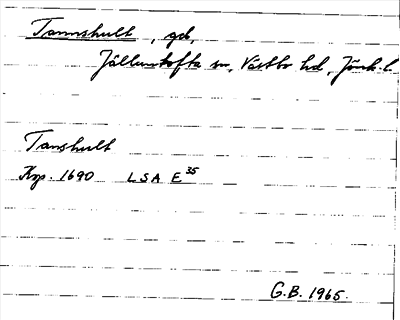 Tannshult, gd,
Jälluntofta sn, Västbo hd, Jönk. l
Tanshult
Kop. 1690 LSA E 35
G.B. 1965.